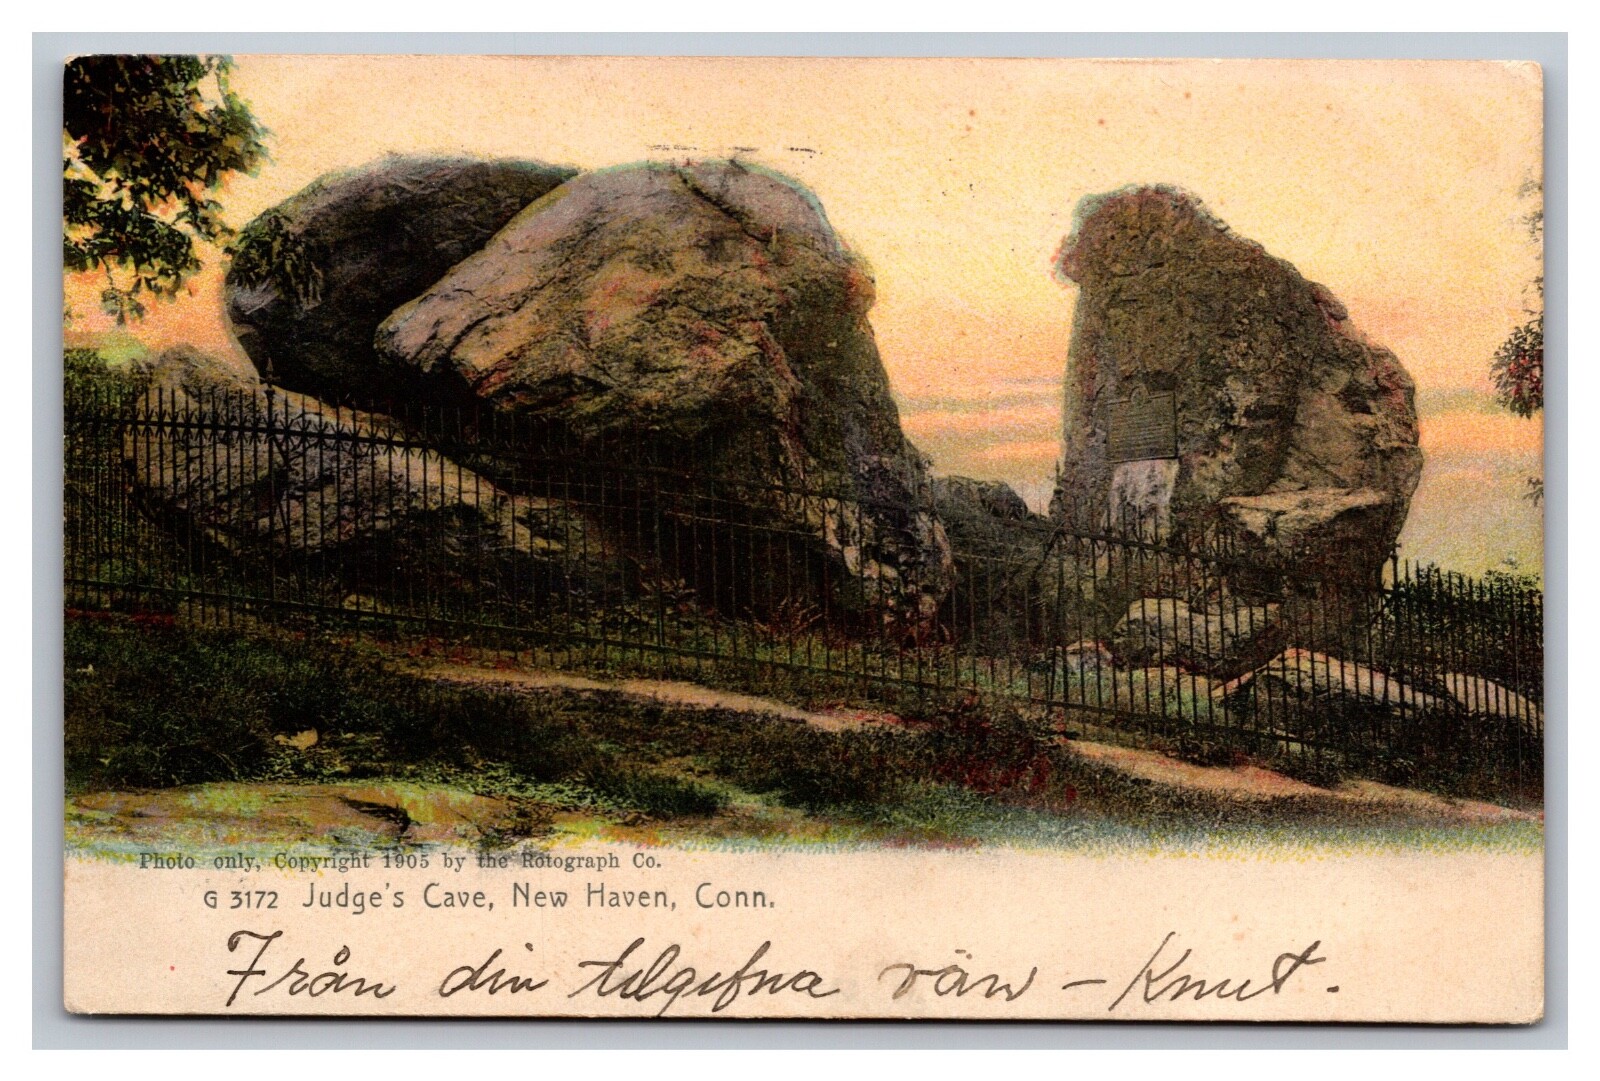 Photo only, Copyright 1905 by the Rotograph Co.
G 3172 Judge's Cave, New Haven, Conn.
Från din tilgifna vän – Knut.